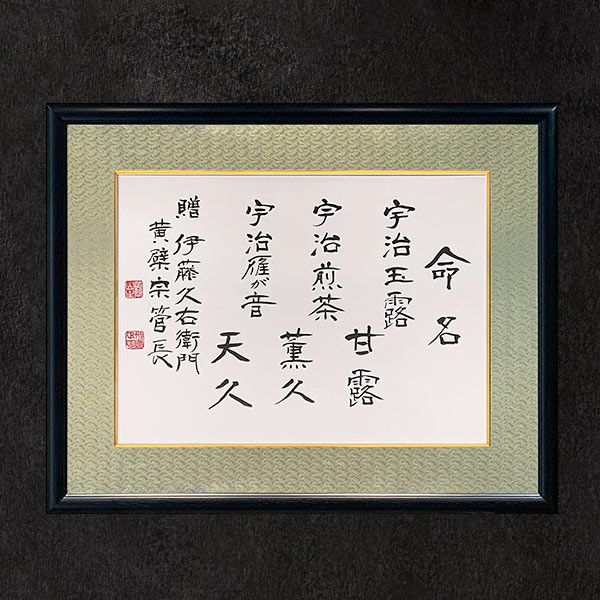 命名
宇治玉露
甘露
宇治煎茶
薫久
宇治雁が音
天久
贈 伊藤久右衛門
黄檗宗管長